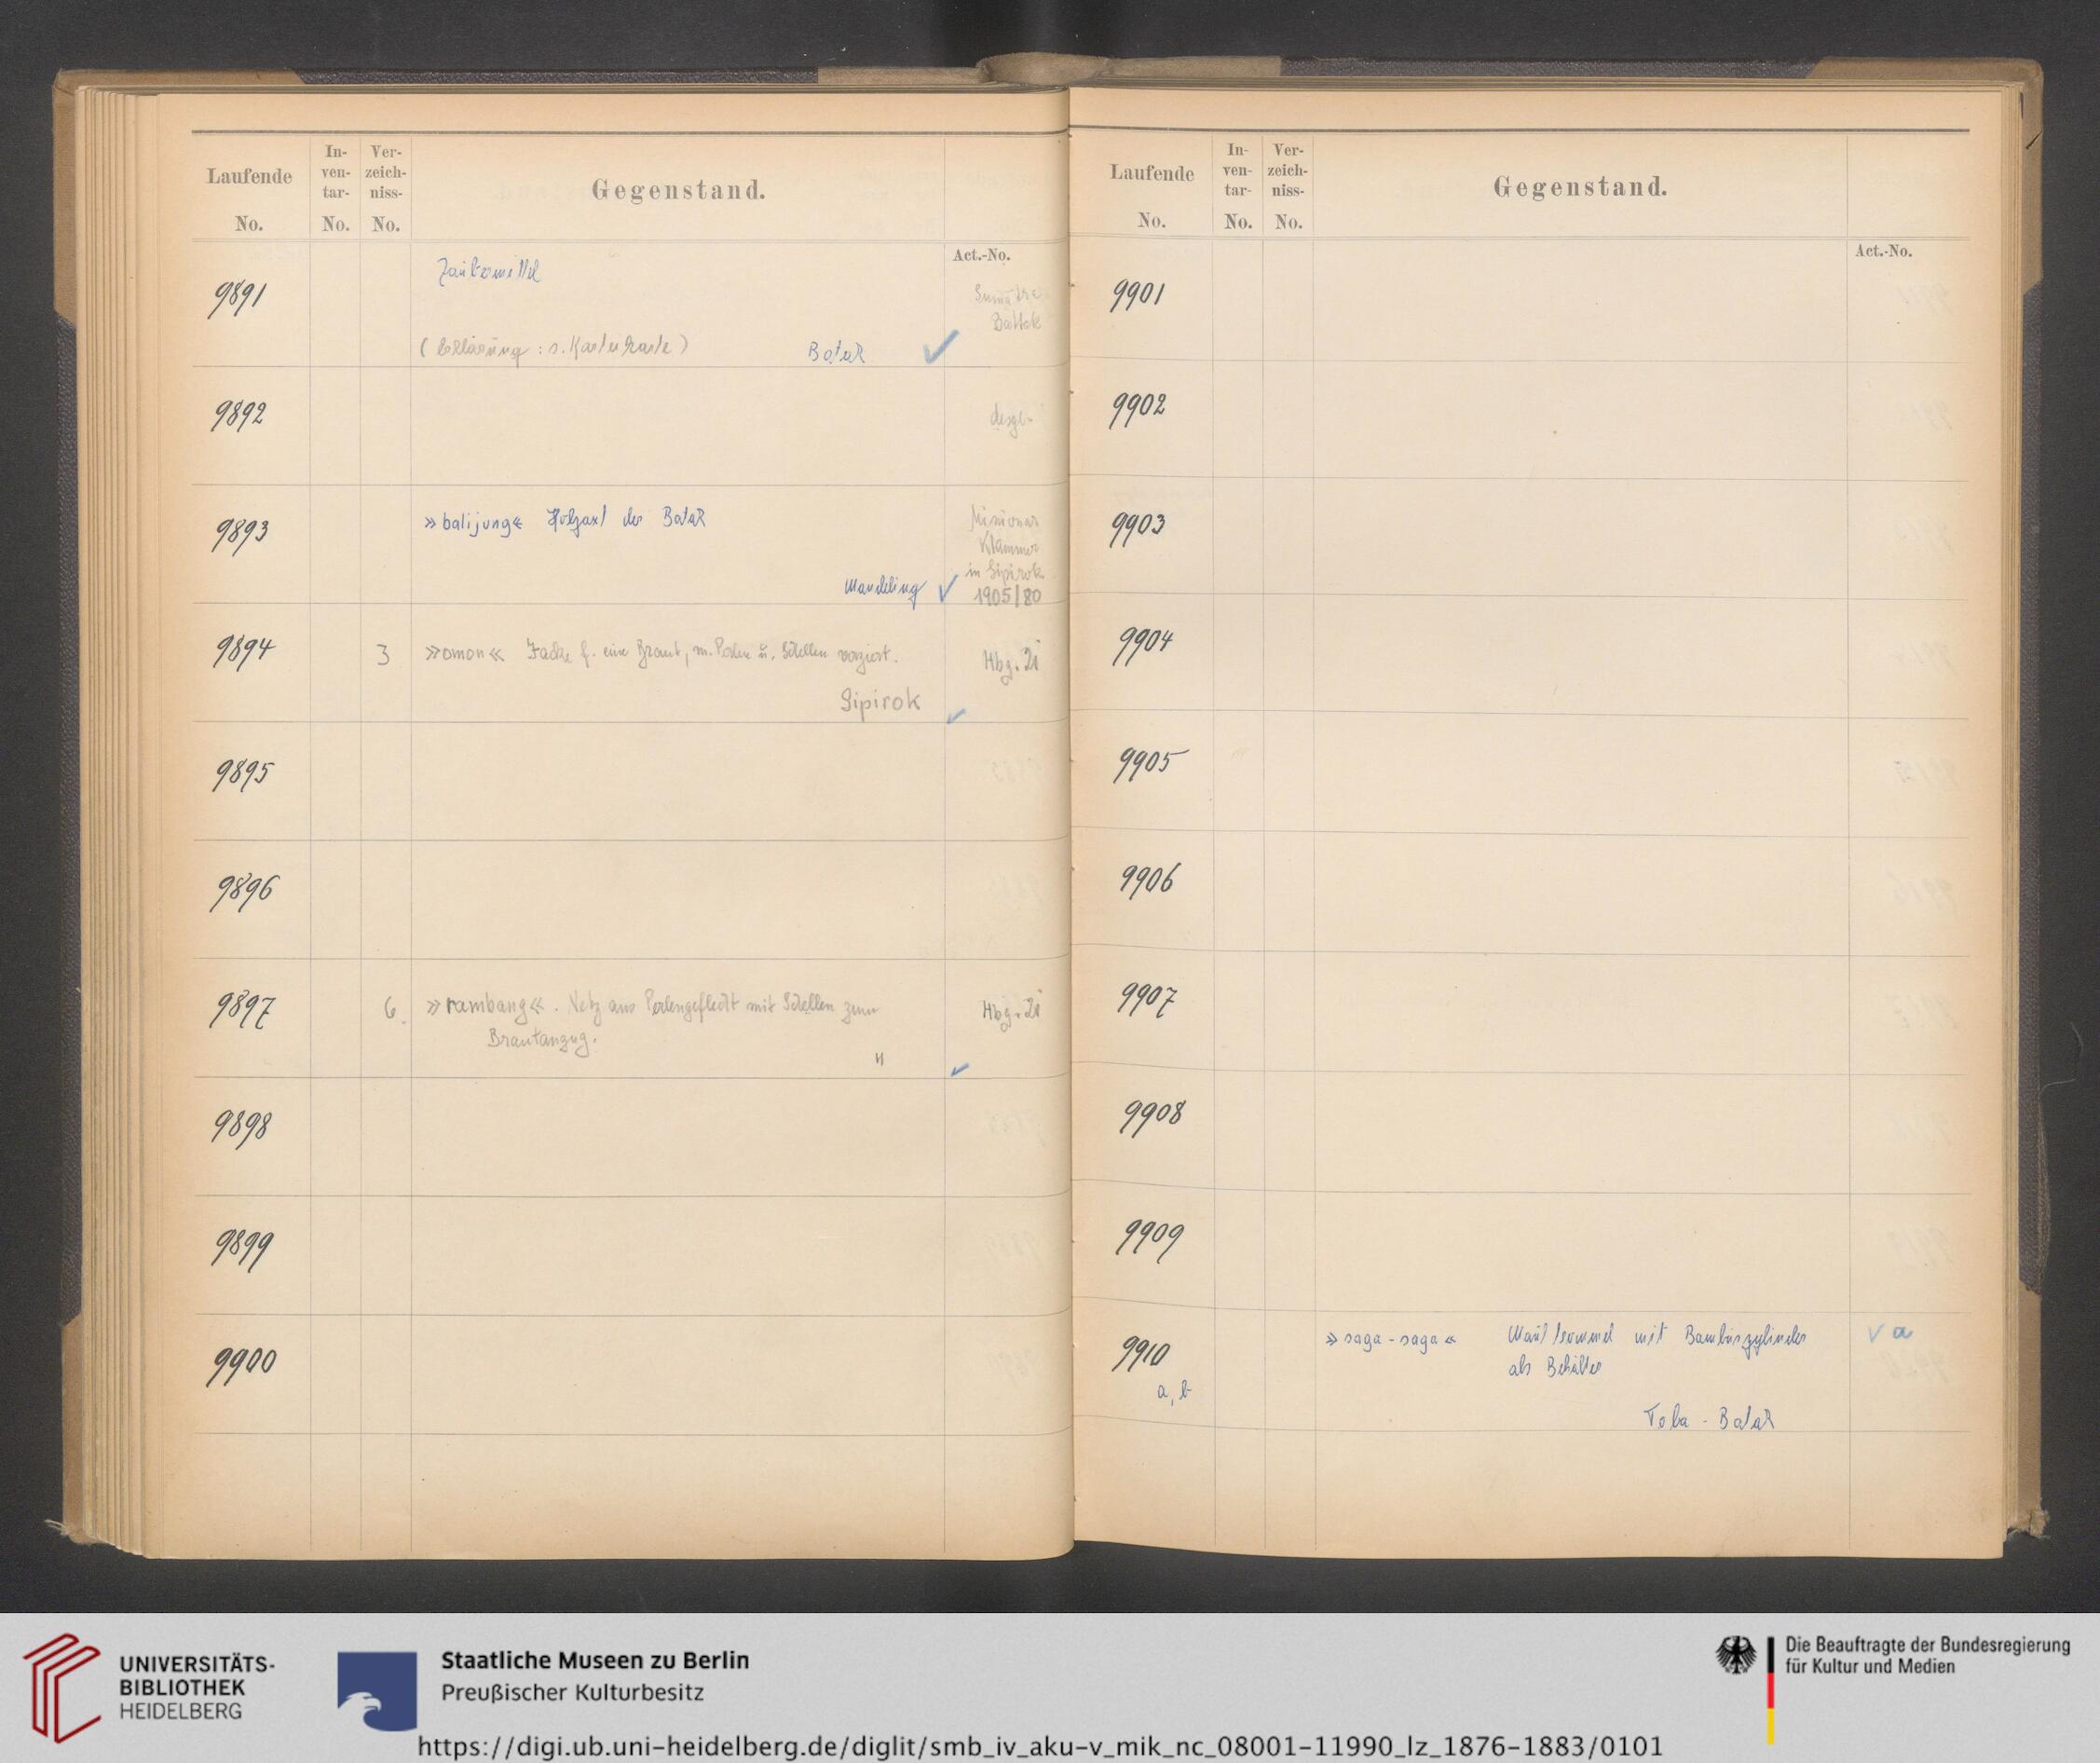 Laufende No.
In-ven-tar- No.
Ver-zeich-niss- No.
Gegenstand.
Act.-No.
9891
Zaubermittel
(Erklärung : s. Karteikarte)
Batak ✓
Sumatra
Battak
9892
desgl.
9893
»balijung« Holzaxt der Batak
Mandeling ✓
Missionar
Klammer
in Sipirok
1905/80
9894
3
»omon« Jacke f. eine Braut, m. Perlen u. Schellen verziert.
Sipirok ✓
Hbg. 21
9895
9896
9897
6.
»rambang«. Netz aus Perlengeflecht mit Schellen zum
Brautanzug.
" ✓
Hbg. 21
9898
9899
9900
Laufende No.
In-ven-tar- No.
Ver-zeich-niss- No.
Gegenstand.
Act.-No.
9901
9902
9903
9904
9905
9906
9907
9908
9909
9910
a, b
»saga-saga« Maultrommel mit Bambuszylinder
als Behälter
Toba - Batak
✓ a
UNIVERSITÄTS-
BIBLIOTHEK
HEIDELBERG
Staatliche Museen zu Berlin
Preußischer Kulturbesitz
Die Beauftragte der Bundesregierung
für Kultur und Medien
https://digi.ub.uni-heidelberg.de/diglit/smb_iv_aku-v_mik_nc_08001-11990_lz_1876-1883/0101